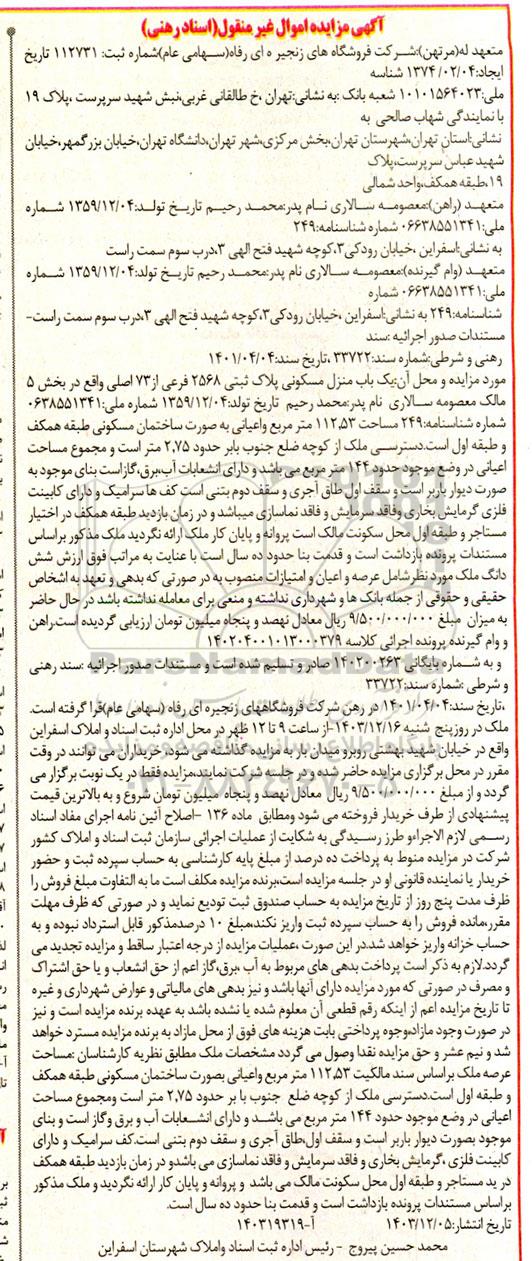 آگهی مزایده اموال غیر منقول(اسناد رهنی)
متعهد له(مرتهن):شرکت فروشگاه های زنجیر ه ای رفاه(سهامی عام)شماره ثبت: ۱۱۲۷۳۱ تاریخ
ایجاد:۱۳۷۴/۰۲/۰۴ شناسه
ملی:۱۰۱۰۱۵۶۴۰۲۳ شعبه بانک :به نشانی:تهران ،خ طالقانی غربی،نبش شهید سرپرست ،پلاک ۱۹
با نمایندگی شهاب صالحی به
نشانی:استان تهران،شهرستان تهران،بخش مرکزی،شهر تهران،دانشگاه تهران،خیابان بزرگمهر،خیابان
شهید عباس سرپرست،پلاک
۱۹،طبقه همکف،واحد شمالی
متعهد (راهن):معصومه سالاری نام پدر:محمد رحیم تاریخ تولد:۱۳۵۹/۱۲/۰۴ شماره
ملی:۰۶۳۸۵۵۱۳۴۱ شماره شناسنامه:۲۴۹
به نشانی:اسفراین ،خیابان رودکی۳،کوچه شهید فتح الهی ۳،درب سوم سمت راست
متعهد (وام گیرنده):معصومه سالاری نام پدر:محمد رحیم تاریخ تولد:۱۳۵۹/۱۲/۰۴ شماره
ملی:۰۶۳۸۵۵۱۳۴۱ شماره
شناسنامه:۲۴۹ به نشانی:اسفراین ،خیابان رودکی۳،کوچه شهید فتح الهی ۳،درب سوم سمت راست-
مستندات صدور اجرائیه :سند
رهنی و شرطی:شماره سند:۳۳۷۲۲ ،تاریخ سند:۱۴۰۱/۰۴/۰۴
مورد مزایده و محل آن:یک باب منزل مسکونی پلاک ثبتی ۲۵۶۸ فرعی از۷۳ اصلی واقع در بخش ۵
مالک معصومه سالاری نام پدر:محمد رحیم تاریخ تولد:۱۳۵۹/۱۲/۰۴ شماره ملی:۰۶۳۸۵۵۱۳۴۱
شماره شناسنامه:۲۴۹ مساحت ۱۱۲،۵۳ متر مربع واعیانی به صورت ساختمان مسکونی طبقه همکف
و طبقه اول است.دسترسی ملک از کوچه ضلع جنوب بابر حدود ۲،۷۵ متر است و مجموع مساحت
اعیانی در وضع موجود حدود ۱۴۴ متر مربع می باشد و دارای انشعابات آب،برق،گازاست بنای موجود به
صورت دیوار باربر است و سقف اول طاق آجری و سقف دوم بتنی است کف ها سرامیک و دارای کابینت
فلزی گرمایش بخاری وفاقد سرمایش و فاقد نماسازی میباشد و در زمان بازدید طبقه همکف در اختیار
مستاجر و طبقه اول محل سکونت مالک است پروانه و پایان کار ملک ارائه نگردید ملک مذکور براساس
مستندات پرونده بازداشت است و قدمت بنا حدود ده سال است با عنایت به مراتب فوق ارزش شش
دانگ ملک مورد نظر شامل عرصه و اعیان و امتیازات منصوب به در صورتی که بدهی و تعهد به اشخاص
حقیقی و حقوقی از جمله بانک ها و شهرداری نداشته و منعی برای معامله نداشته باشد در حال حاضر
به میزان مبلغ ۹/۵۰۰/۰۰۰/۰۰۰ ریال معادل نهصد و پنجاه میلیون تومان ارزیابی گردیده است.راهن
و وام گیرنده پرونده اجرائی کلاسه ۱۴۰۲۰۴۰۰۱۰۱۳۰۰۰۳۷۹
و به شماره بایگانی ۱۴۰۲۰۰۲۶۳ صادر و تسلیم شده است و مستندات صدور اجرائیه :سند رهنی
و شرطی :شماره سند:۳۳۷۲۲
،تاریخ سند:۱۴۰۱/۰۴/۰۴ در رهن شرکت فروشگاههای زنجیره ای رفاه (سهامی عام)قرا گرفته است.
ملک در روز پنج شنبه ۱۴۰۳/۱۲/۱۶-از ساعت ۹ تا ۱۲ ظهر در محل اداره ثبت اسناد و املاک اسفراین
واقع در خیابان شهید بهشتی روبرو میدان بار به مزایده گذاشته می شود.خریداران می توانند در وقت
مقرر در محل برگزاری مزایده حاضر شده و در جلسه شرکت نمایند،مزایده فقط در یک نوبت برگزار می
گردد و از مبلغ ۹/۵۰۰/۰۰۰/۰۰۰ ریال معادل نهصد و پنجاه میلیون تومان شروع و به بالاترین قیمت
پیشنهادی از طرف خریدار فروخته می شود ومطابق ماده ۱۳۶ -اصلاح آئین نامه اجرای مفاد اسناد
رسمی لازم الاجراءو طرز رسیدگی به شکایت از عملیات اجرائی سازمان ثبت اسناد و املاک کشور
شرکت در مزایده منوط به پرداخت ده درصد از مبلغ پایه کارشناسی به حساب سپرده ثبت و حضور
خریدار یا نماینده قانونی او در جلسه مزایده است،برنده مزایده مکلف است ما به التفاوت مبلغ فروش را
ظرف مدت پنج روز از تاریخ مزایده به حساب صندوق ثبت تودیع نماید و در صورتی که ظرف مهلت
مقرر،مانده فروش را به حساب سپرده ثبت واریز نکند،مبلغ ۱۰ درصدمذکور قابل استرداد نبوده و به
حساب خزانه واریز خواهد شد.در این صورت ،عملیات مزایده از درجه اعتبار ساقط و مزایده تجدید می
گردد.لازم به ذکر است پرداخت بدهی های مربوط به آب ،برق،گاز اعم از حق انشعاب و یا حق اشتراک
و مصرف در صورتی که مورد مزایده دارای آنها باشد و نیز بدهی های مالیاتی و عوارض شهرداری و غیره
تا تاریخ مزایده اعم از اینکه رقم قطعی آن معلوم شده یا نشده باشد به عهده برنده مزایده است و نیز
در صورت وجود مازاد،وجوه پرداختی بابت هزینه های فوق از محل مازاد به برنده مزایده مسترد خواهد
شد و نیم عشر و حق مزایده نقدا وصول می گردد مشخصات ملک مطابق نظریه کارشناسان :مساحت
عرصه ملک براساس سند مالکیت ۱۱۲،۵۳ متر مربع واعیانی بصورت ساختمان مسکونی طبقه همکف
و طبقه اول است.دسترسی ملک از کوچه ضلع جنوب با بر حدود ۲،۷۵ متر است ومجموع مساحت
اعیانی در وضع موجود حدود ۱۴۴ متر مربع می باشد و دارای انشعابات آب و برق وگاز است و بنای
موجود بصورت دیوار باربر است و سقف اول،طاق آجری و سقف دوم بتنی است.کف سرامیک و دارای
کابینت فلزی ،گرمایش بخاری و فاقد سرمایش و فاقد نماسازی می باشدو در زمان بازدید طبقه همکف
در ید مستاجر و طبقه اول محل سکونت مالک می باشد و پروانه و پایان کار ارائه نگردید و ملک مذکور
براساس مستندات پرونده بازداشت است و قدمت بنا حدود ده سال است.
تاریخ انتشار:۱۴۰۳/۱۲/۰۵ آ-۱۴۰۳۱۹۳۱۹
محمد حسین پیروج - رئیس اداره ثبت اسناد واملاک شهرستان اسفراین